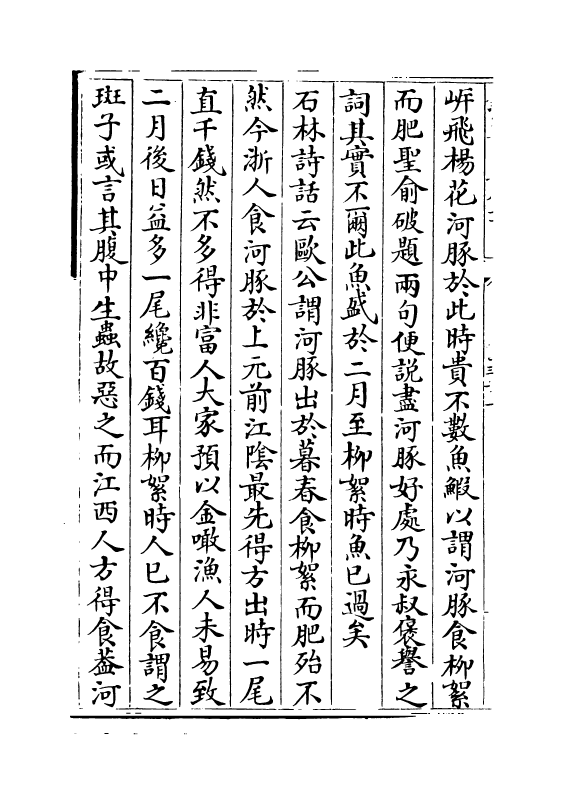 岍飛楊花河豚於此時貴不數魚鰕以謂河豚食柳絮
而肥聖俞破題兩句便説盡河豚好處乃永叔褒譽之
詞其實不爾此魚盛於二月至柳絮時魚已過矣
石林詩話云歐公謂河豚出於暮春食柳絮而肥殆不
然今浙人食河豚於上元前江陰最先得方出時一尾
直千錢然不多得非富人大家預以金噉漁人未易致
二月後日益多一尾纔百錢耳柳絮時人已不食謂之
斑子或言其腹中生蟲故惡之而江西人方得食葢河